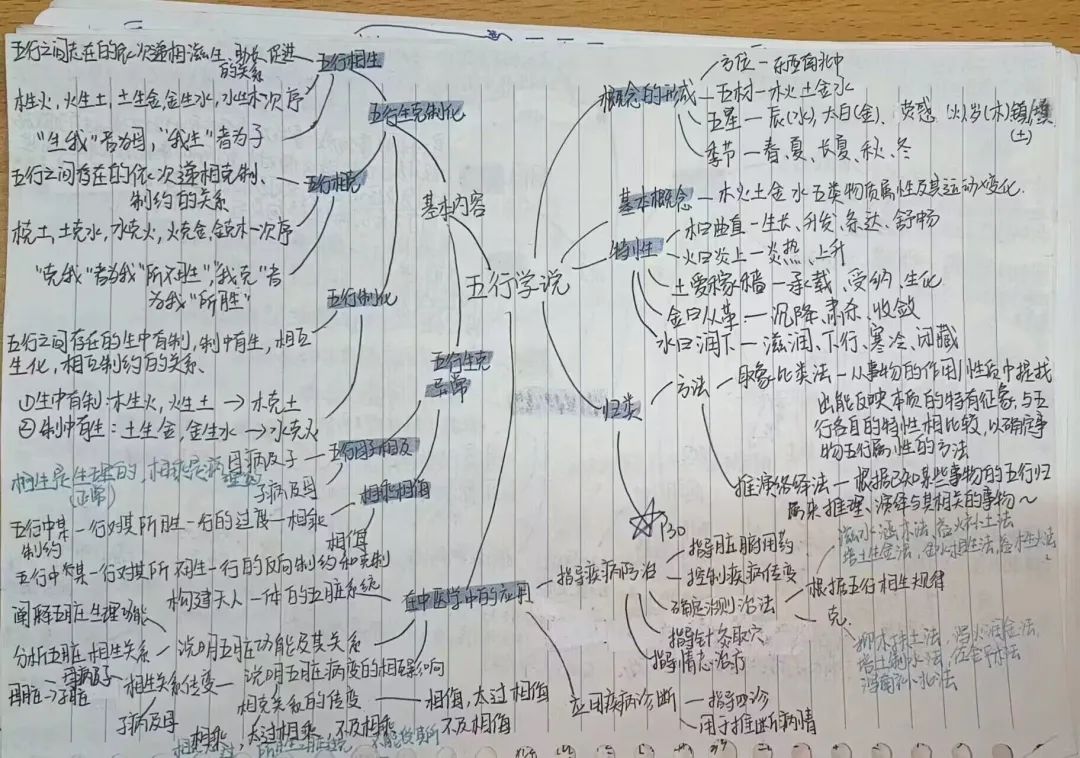 五行学说
概念的形成
方位－东西南北中
五材－木火土金水
五星－辰(水),太白(金)、荧惑(火)岁(木)镇
(土)
季节－春、夏、长夏、秋、冬
基本概念－木火土金水五类物质属性及其运动变化
特性
木曰曲直－生长、升发、条达、舒畅
火曰炎上－炎热、上升
土爰稼穑－承载、受纳、生化
金曰从革－沉降、肃杀、收敛
水曰润下－滋润、下行、寒冷、闭藏
归类
方法
取象比类法－从事物的作用/性质中提找
出能反映本质的特有征象,与五
行各自的特性相比较,以确定事
物五行属性的方法
推演络绎法－根据已知某些事物的五行归
属来推理、演绎与其相关的事物～
P30
基本内容
五行生克制化
五行相生
五行之间存在的依次递相滋生、助长、促进
的关系
木生火,火生土,土生金,金生水,水生木次序
"生我"者为母,"我生"者为子
五行相克
五行之间存在的依次递相克制、
制约的关系
木克土,土克水,水克火,火克金,金克木一次序
"克我"者为我"所不胜","我克"者
为我"所胜"
五行制化
五行之间存在的生中有制,制中有生,相互
生化,相互制约的关系、
①生中有制:木生火,火生土→木克土
②制中有生:土生金,金生水→水克火
五行生克
异常
五行母子相及
母病及子
子病及母
相生是生理的,相乘是病理
(正常)
相乘相侮
五行中某一行对其所胜一行的过度
制约
－相乘
相侮
五行中某一行对其所不胜一行的反向制约和克制
在中医学中的应用
构建天人一体的五脏系统
说明五脏功能及其关系
阐释五脏生理功能
分析五脏相生关系
说明五脏病变的相互影响
相生关系传变
母病及子
母脏→子脏
子病及母
相克关系的传变
相乘,太过相乘,不及相乘
相侮,太过相侮
不及相侮
指导疾病防治
指导脏腑用药
控制疾病传变
确定治则治法
根据五行相生规律
滋水涵木法、益火补土法
培土生金法,金水相生法,益木生火法
克
抑木扶土法,泻火润金法,
培土制水法,佐金平木法
泻南补北法
指导针灸取穴
指导情志治疗
应用疾病诊断
指导四诊
用于推断病情